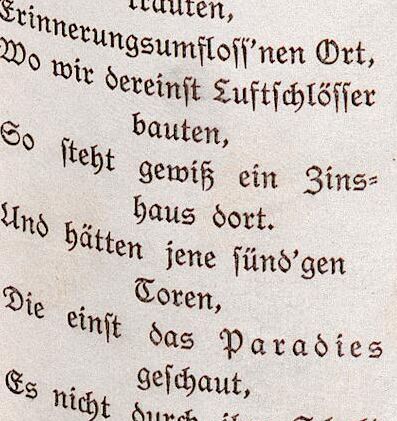 trauten,
Erinnerungsumfloss'nen Ort,
Wo wir dereinst Luftschlösser
bauten,
So steht gewiß ein Zins-
haus dort.
Und hätten jene sünd'gen
Toren,
Die einst das Paradies
geschaut,
Es nicht durch ihre